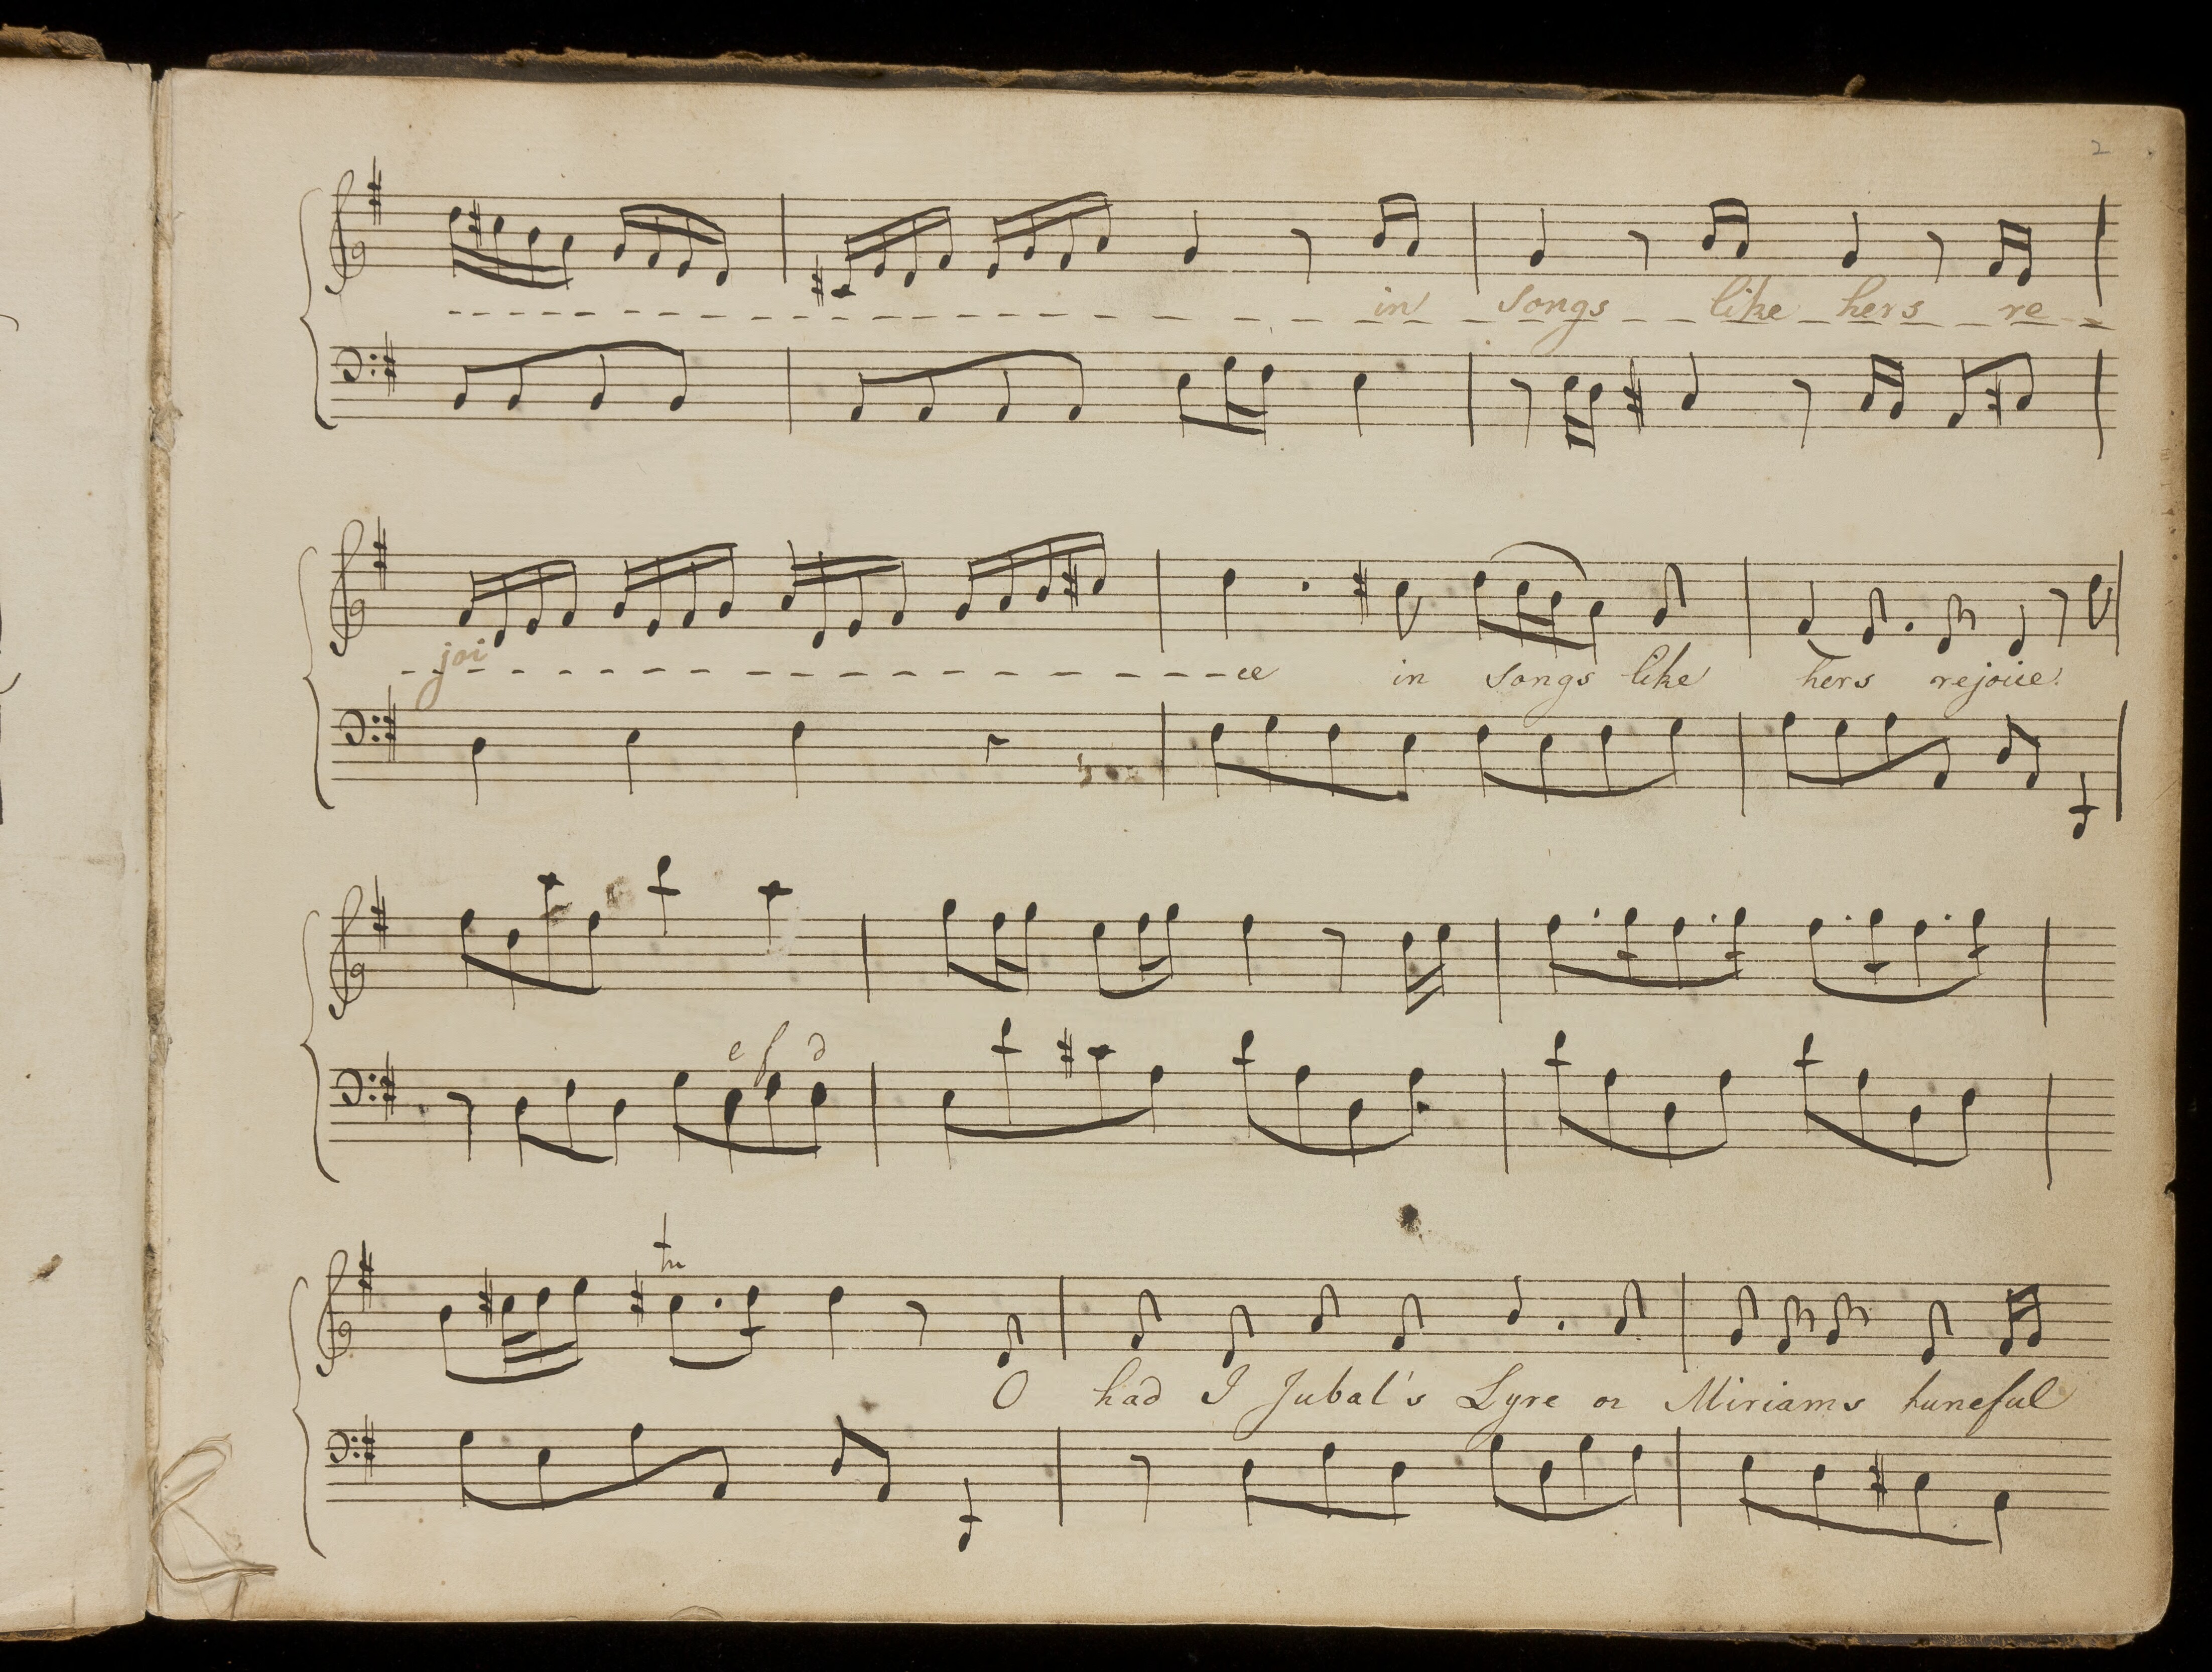 2
in songs like hers re
joi ce in songs like hers rejoice.
e f d
tr
O had I Jubal's Lyre or Miriams tuneful